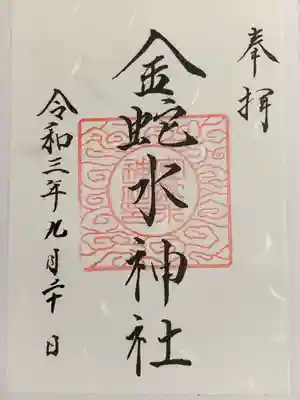 奉拝
金蛇水神社
令和三年九月二十日